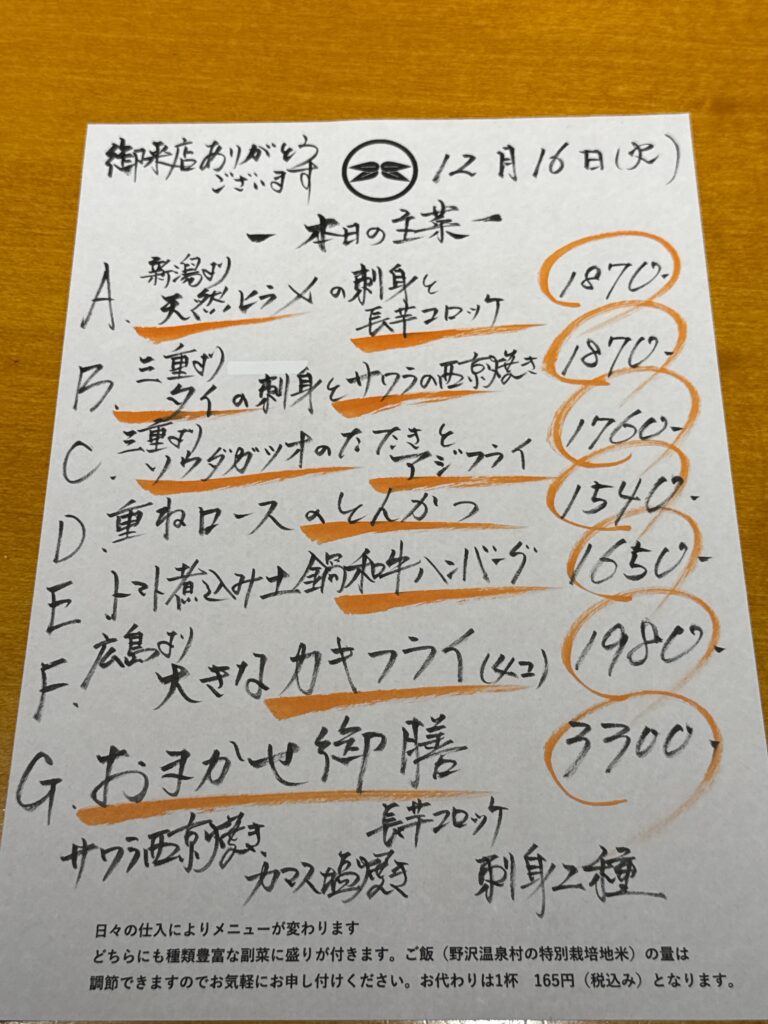 御来店ありがとう
ございます
12月16日(火)
ー 本日の主菜 ー
A. 新潟より
天然ヒラメの刺身と
長芋コロッケ
1870-
B. 三重より
タイの刺身とサワラの西京焼き
1870-
C. 三重より
ソウダガツオのたたきと
アジフライ
1760-
D. 重ねロースのとんかつ
1540-
E トマト煮込み土鍋和牛ハンバーグ
1650-
F. 広島より
大きなカキフライ(4コ)
1980-
G. おまかせ御膳
3300-
サワラ西京焼き、
長芋コロッケ
カマス塩焼き
刺身2種
日々の仕入によりメニューが変わります
どちらにも種類豊富な副菜に盛りが付きます。ご飯（野沢温泉村の特別栽培地米）の量は
調節できますのでお気軽にお申し付けください。お代わりは1杯　165円（税込み）となります。